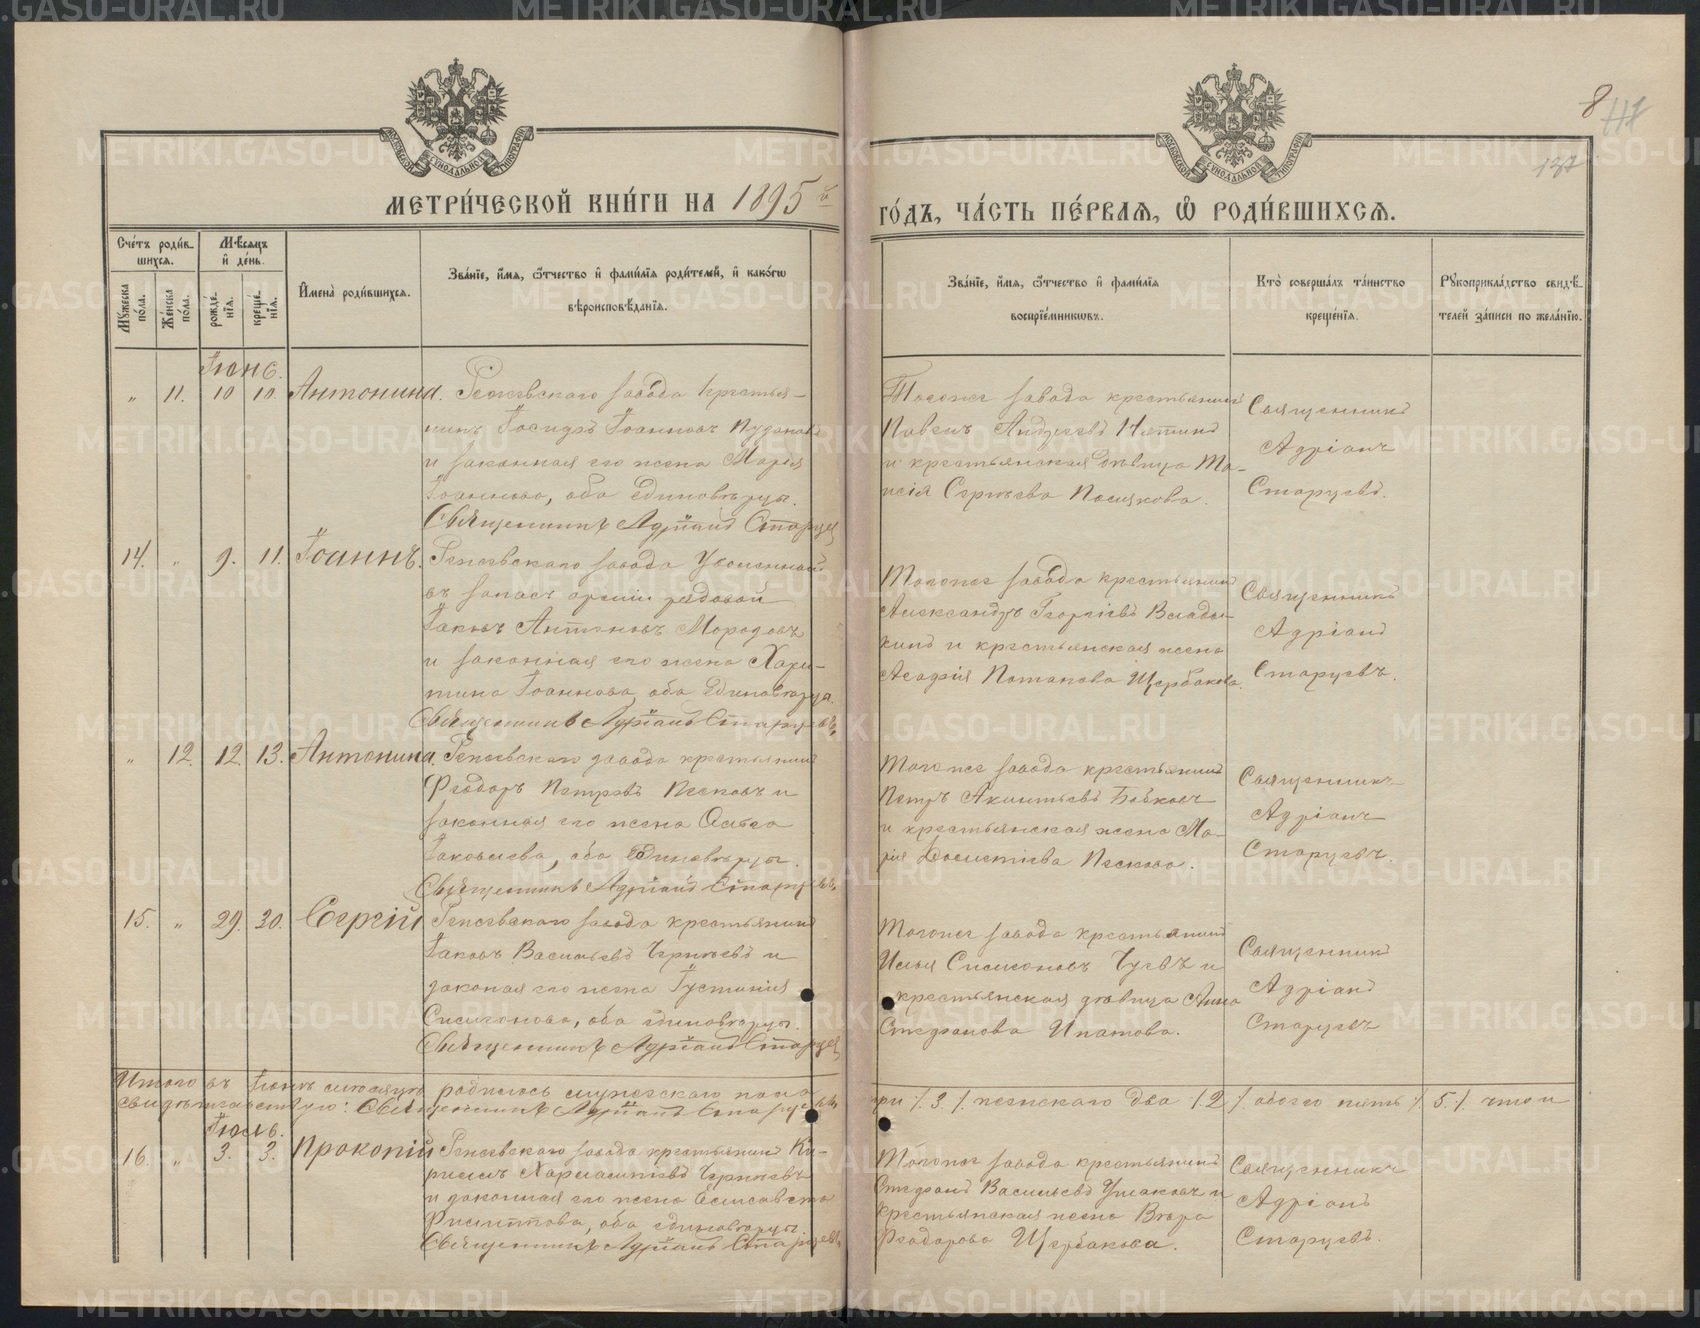 МЕТРИ́ЧЕСКОЙ КНИ́ГИ НА 1895 й
ГО́ДЪ, ЧА́СТЬ ПЕ́РВАѦ, Ѡ РОДИ́ВШИХСѦ.
8
Сче́тъ роди́в-
шихсѧ.
Мѣ́сѧцъ
и҆ де́нь.
Мꙋ́жеска
по́ла.
Же́нска
по́ла.
рожде́-
нїѧ.
креще́-
нїѧ.
И҆мена̀ роди́вшихсѧ.
Зва́нїе, и҆́мѧ, ѻ҆́тчество и҆ фами́лїѧ роди́телей, и҆ како́гѡ
вѣроисповѣ́данїѧ.
Зва́нїе, и҆́мѧ, ѻ҆́тчество и҆ фами́лїѧ
воспрїе́мникѡвъ.
Кто̀ соверша́лъ та́инство
креще́нїѧ.
Рꙋкоприкла́дство свидѣ́-
телей за́писи по жела́нїю.
Іюнь.
„ 11. 10 10. Антонина. Режевскаго завода крестья-
нинъ Іоанновъ
и законная его жена Марія
Іоаннова, оба единовѣрцы.
Священникъ Адріанъ Старцевъ
Тогоже завода крестьянинъ
Павелъ Андреевъ
и крестьянская дѣвица Та-
исія Сергѣева
Священникъ
Адріанъ
Старцевъ.
14. „ 9. 11. Іоаннъ. Режевскаго завода Уволенный
въ запасъ арміи рядовой
Іаковъ Антоновъ
и законная его жена Хари-
тина Іоаннова, оба единовѣрцы.
Священникъ Адріанъ Старцевъ
Тогоже завода крестьянинъ
Александръ Георгіевъ Влады-
кинъ и крестьянская жена
Агафія Потапова Щербакова.
Священникъ
Адріанъ
Старцевъ.
„ 12. 12. 13. Антонина. Режевскаго завода крестьянинъ
Ѳеодоръ Петровъ Песковъ и
законная его жена Ольга
Іаковлева, оба единовѣрцы.
Священникъ Адріанъ Старцевъ
Тогоже завода крестьянинъ
Петръ Акинтьевъ Бобковъ
и крестьянская жена Ма-
рія Пескова.
Священникъ
Адріанъ
Старцевъ.
15. „ 29. 30. Сергій Режевскаго завода крестьянинъ
Іаковъ Васильевъ Чепчевъ и
законая его жена Іустинія
Симеонова, оба единовѣрцы.
Священникъ Адріанъ Старцевъ
Тогоже завода крестьянинъ
Илья Симеоновъ и
крестьянская дѣвица Анна
Стефанова Ипатова.
Священникъ
Адріанъ
Старцевъ
Итого въ Іюнѣ мѣсяцѣ родилось мужескаго пола три /. 3 /. женскаго два /. 2 /. обоего пять /. 5. /. что и
свидѣтельствую: Священникъ Адріанъ Старцевъ
Іюль.
16. „ 3. 3. Прокопій Режевскаго завода крестьянинъ Ки-
риллъ Харлампіевъ Чепчевъ
и законная его жена Елисавета
Филиппова, оба единовѣрцы.
Священникъ Адріанъ Старцевъ
Тогоже завода крестьянинъ
Стефанъ Васильевъ Ушаковъ и
крестьянская жена Вѣра
Ѳеодорова Щербакова.
Священникъ
Адріанъ
Старцевъ.
METRIKI.GASO-URAL.RU